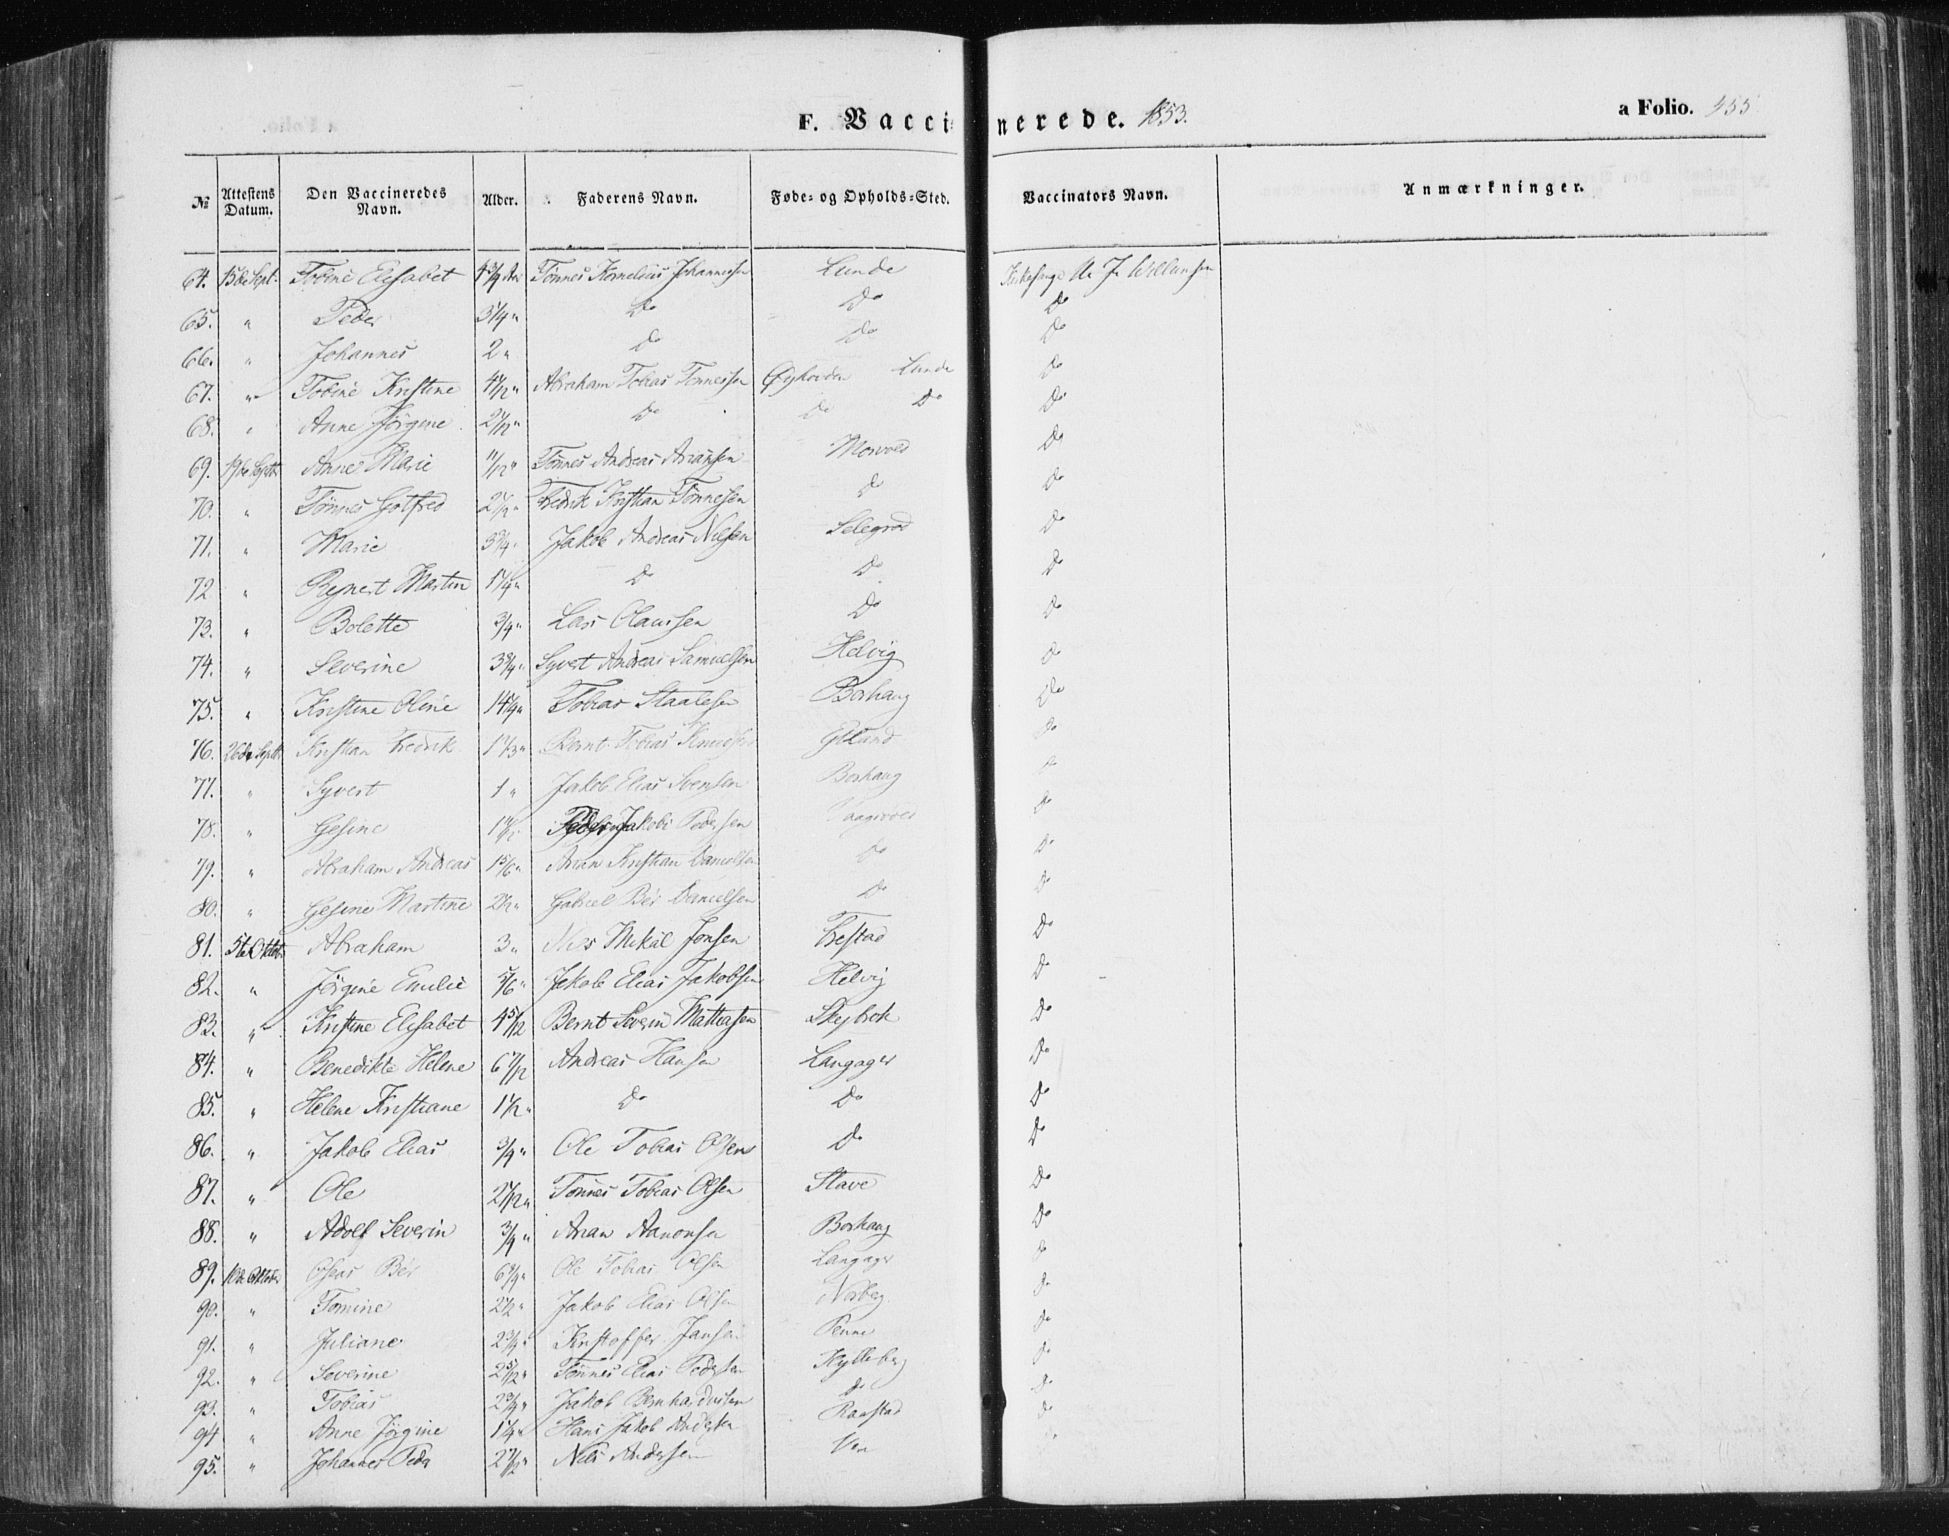 F. Vaccinerede. 1853.
a Folio. 455
№ Attestens Datum. Den Vaccineredes Navn. Alder. Faderens Navn. Føde- og Opholds-Sted. Vaccinators Navn. Anmærkninger.
64. 15de Sept. Tobine Elisabet 4 3/4 Aar Tønnes Kornelius Johannessen Lunde Kirkesanger
65. " Peder 3 1/4 " Do Do Do
66. " Johannes 2 " Do Do Do
67. " Tobine Kristine Abraham Tobias Tønnessen Lunde Do
68. " Anne Jörgine Do Do Do Do
69. 19de Septb. Anne Marie 11/12 " Tönnes Andreas Do
70. " Tönnes Gotfred Fredrik Kristian Tönnesen Do Do
71. " Marie 3 3/4 " Jakob Andreas Nilsen Do
72 " Reynert Martin 1 1/4 " Do Do Do
73. " Bolette 3/4 " Lars Olaussen Do Do
74. " Severine 3 3/4 " Syvert Andreas Samuelsen Helvig Do
75. " Kristine Oline Tobias Staalesen Borhaug Do
76. 26de Septb. Kristian Fredrik 1 1/3 " Bernt Tobias Knudsen Do
77. " Syvert 1 " Jakob Elias Svensen Borhaug Do
78. " Gesine Jakob Pedersen Do
79. " Abraham Andreas 1 5/6 " Arian Kristian Danielsen Do Do
80. " Gesine Martine Gabriel Danielsen Do Do
81. 5te Oktob. Abraham 3 " Nils Mikal Jonsen Vestad Do
82. " Jörgine Emilie 5/6 " Jakob Elias Jakobsen Helvig Do
83. " Kristine Elisabet 4 5/12 Bernt Severin Mattiasen Skeibrok Do
84. " Benedikte Helene 6 7/12 Andreas Hansen Langager Do
85. " Helene Kristiane 1 1/2 " Do Do Do
86. " Jakob Elias 3/4 " Ole Tobias Olsen Do Do
87. " Ole Tönnes Tobias Olsen Stave Do
88. " Adolf Severin 3/4 " Arian Aanonsen Borhaug Do
89. 10de Oktober Ole Tobias Olsen Langager Do
90. " Tomine 2 1/2 " Jakob Elias Olsen Norberg Do
91. " Juliane 2 3/4 " Kristoffer Jansen Penne Do
92. " Severine 2 5/12 " Tönnes Elias Pedersen Do
93. " Tobias 2 3/4 " Jakob Bernhardussen Do Do
94 " Anne Jörgine 1 1/4 " Hans Jakob Raustad Do
95. " Johannes Peder Nils Andersen